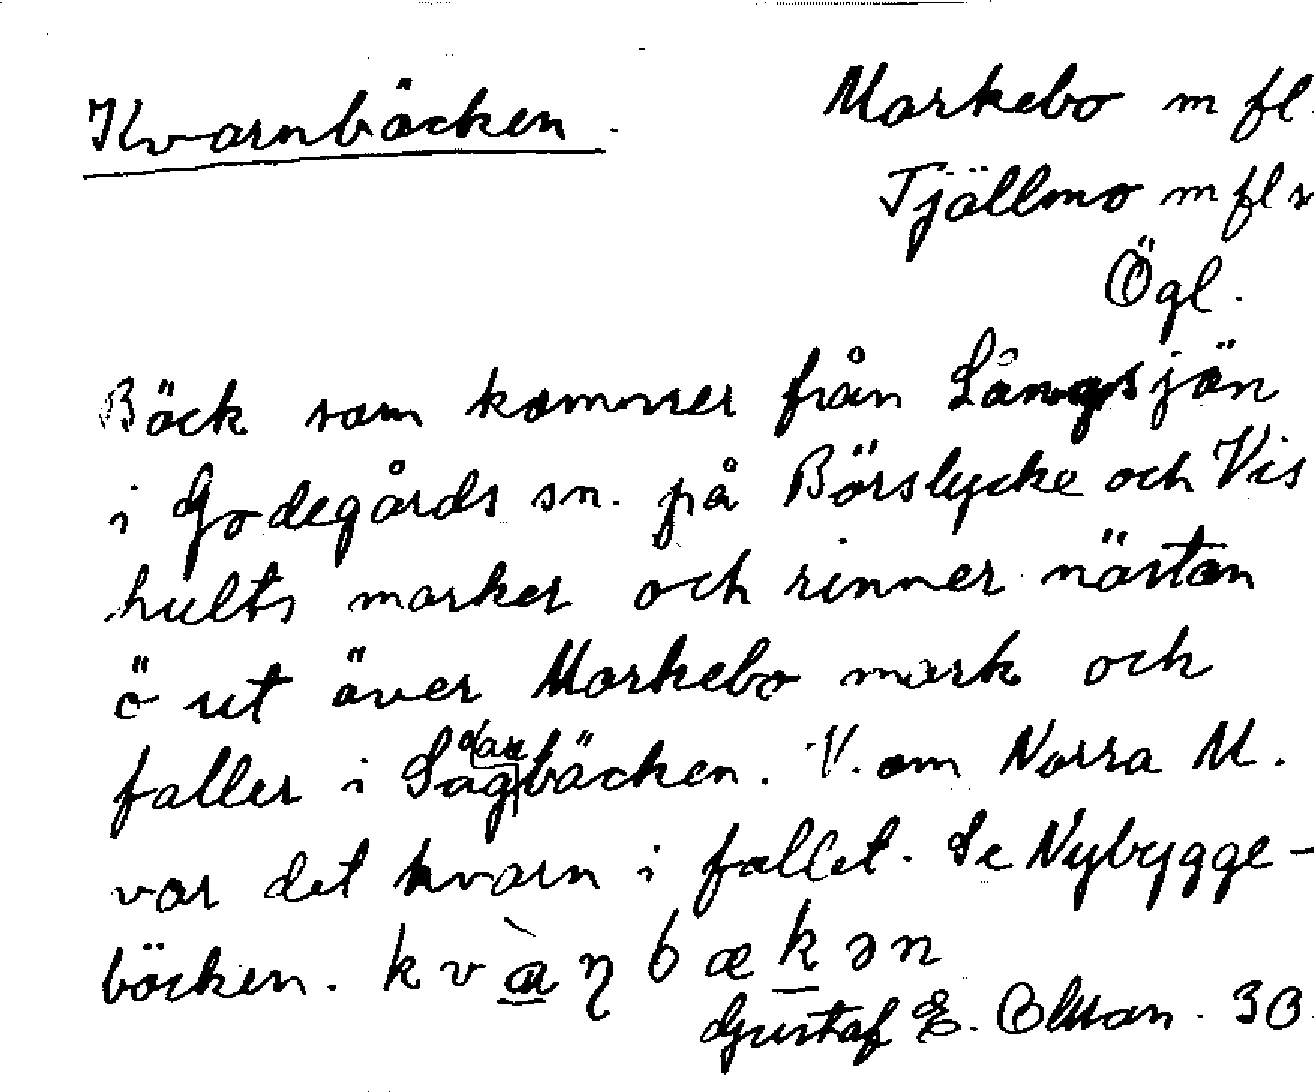 Kvarnbäcken. Markebo m fl.
Tjällmo m fl
Ögl.
Bäck som kommer från Långsjön
i Godegårds sn. på Börslycke och Vis
hults marker och rinner nästan
ö ut över Markebo mark och
faller i Sågbäcken. V. om Norra M.
var det kvarn i fallet. Se Nybygge-
bäcken. k v à η b æ k ə n
Gustaf E. Olsson. 30.